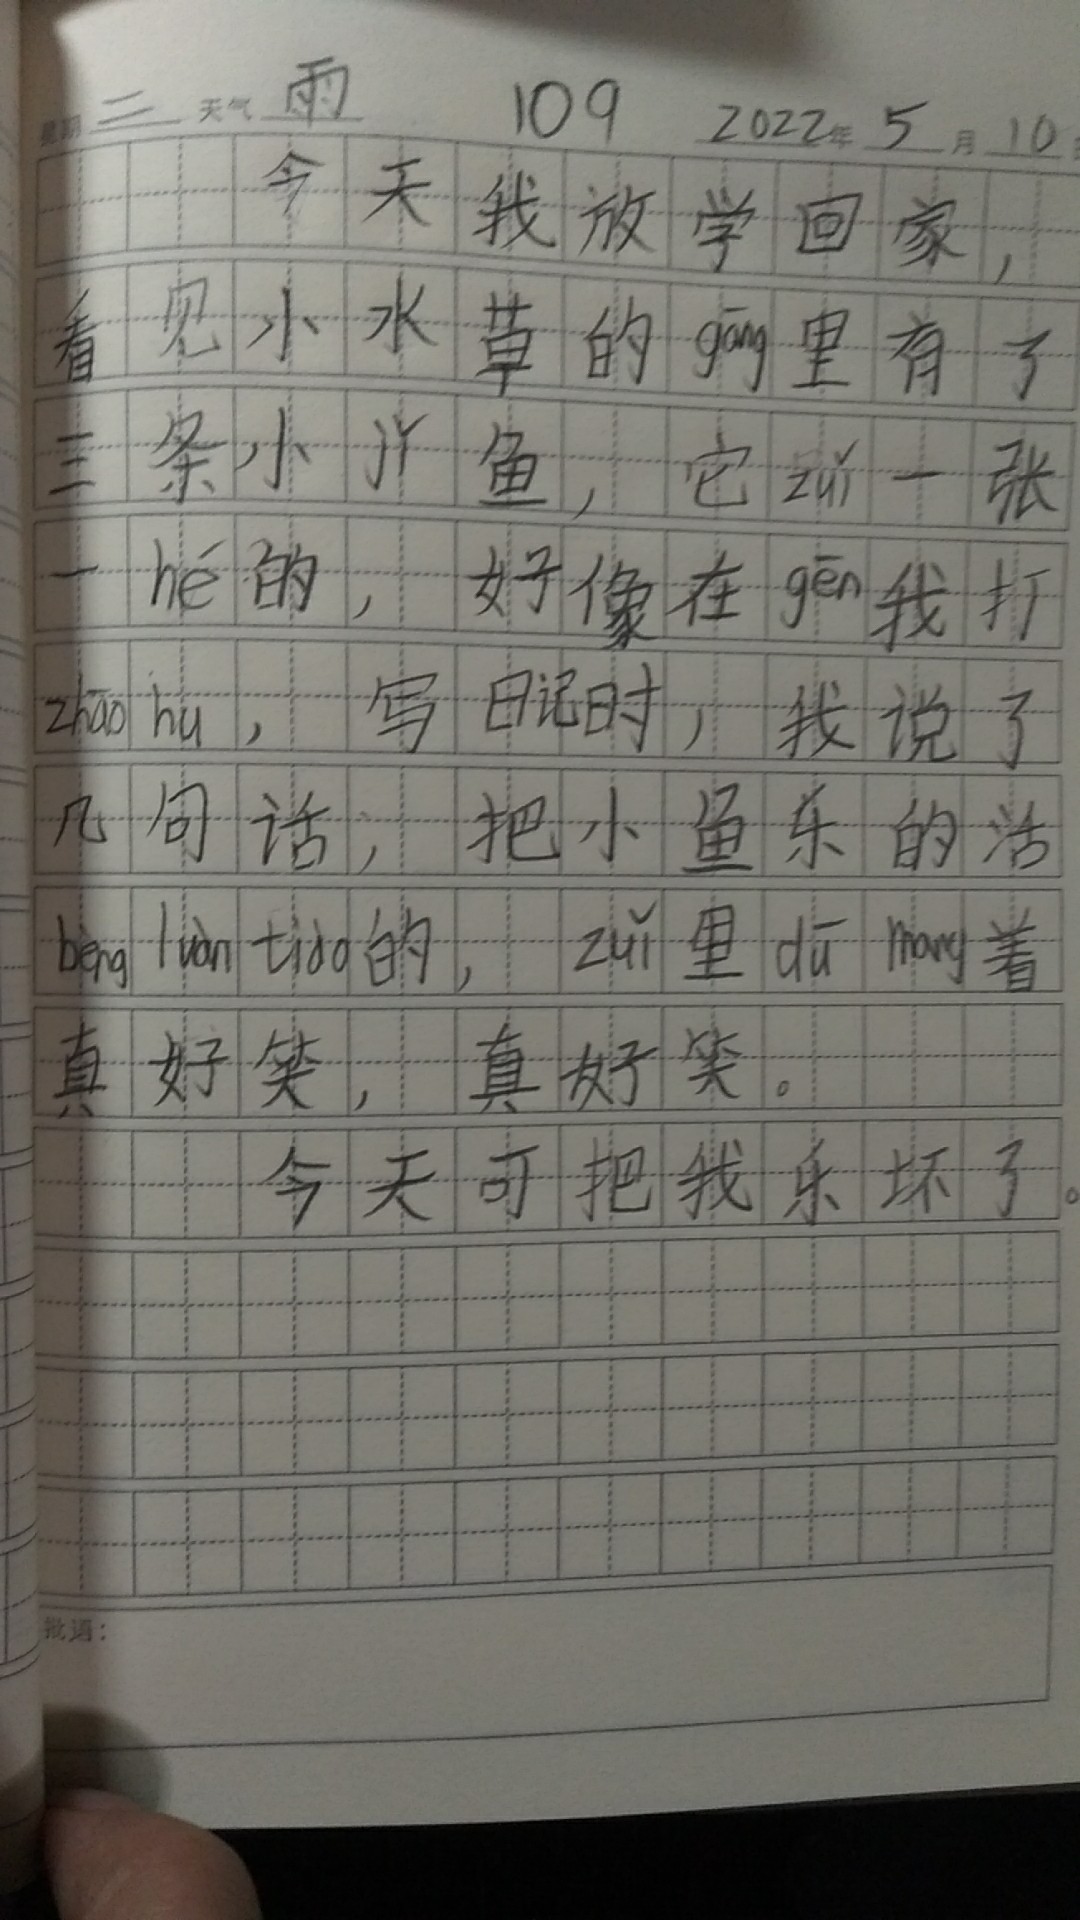 星期二 天气雨 109 2022年5月10
今天我放学回家，
看见小水草的gāng里有了
三条小丫鱼，它zuǐ一张
一hé的，好像在gēn我打
zhāo hu，写日记时，我说了
几句话，把小鱼乐的活
bèng luàn tiào的，zuǐ里dū nang着
真好笑，真好笑。
今天可把我乐坏了。
批语：